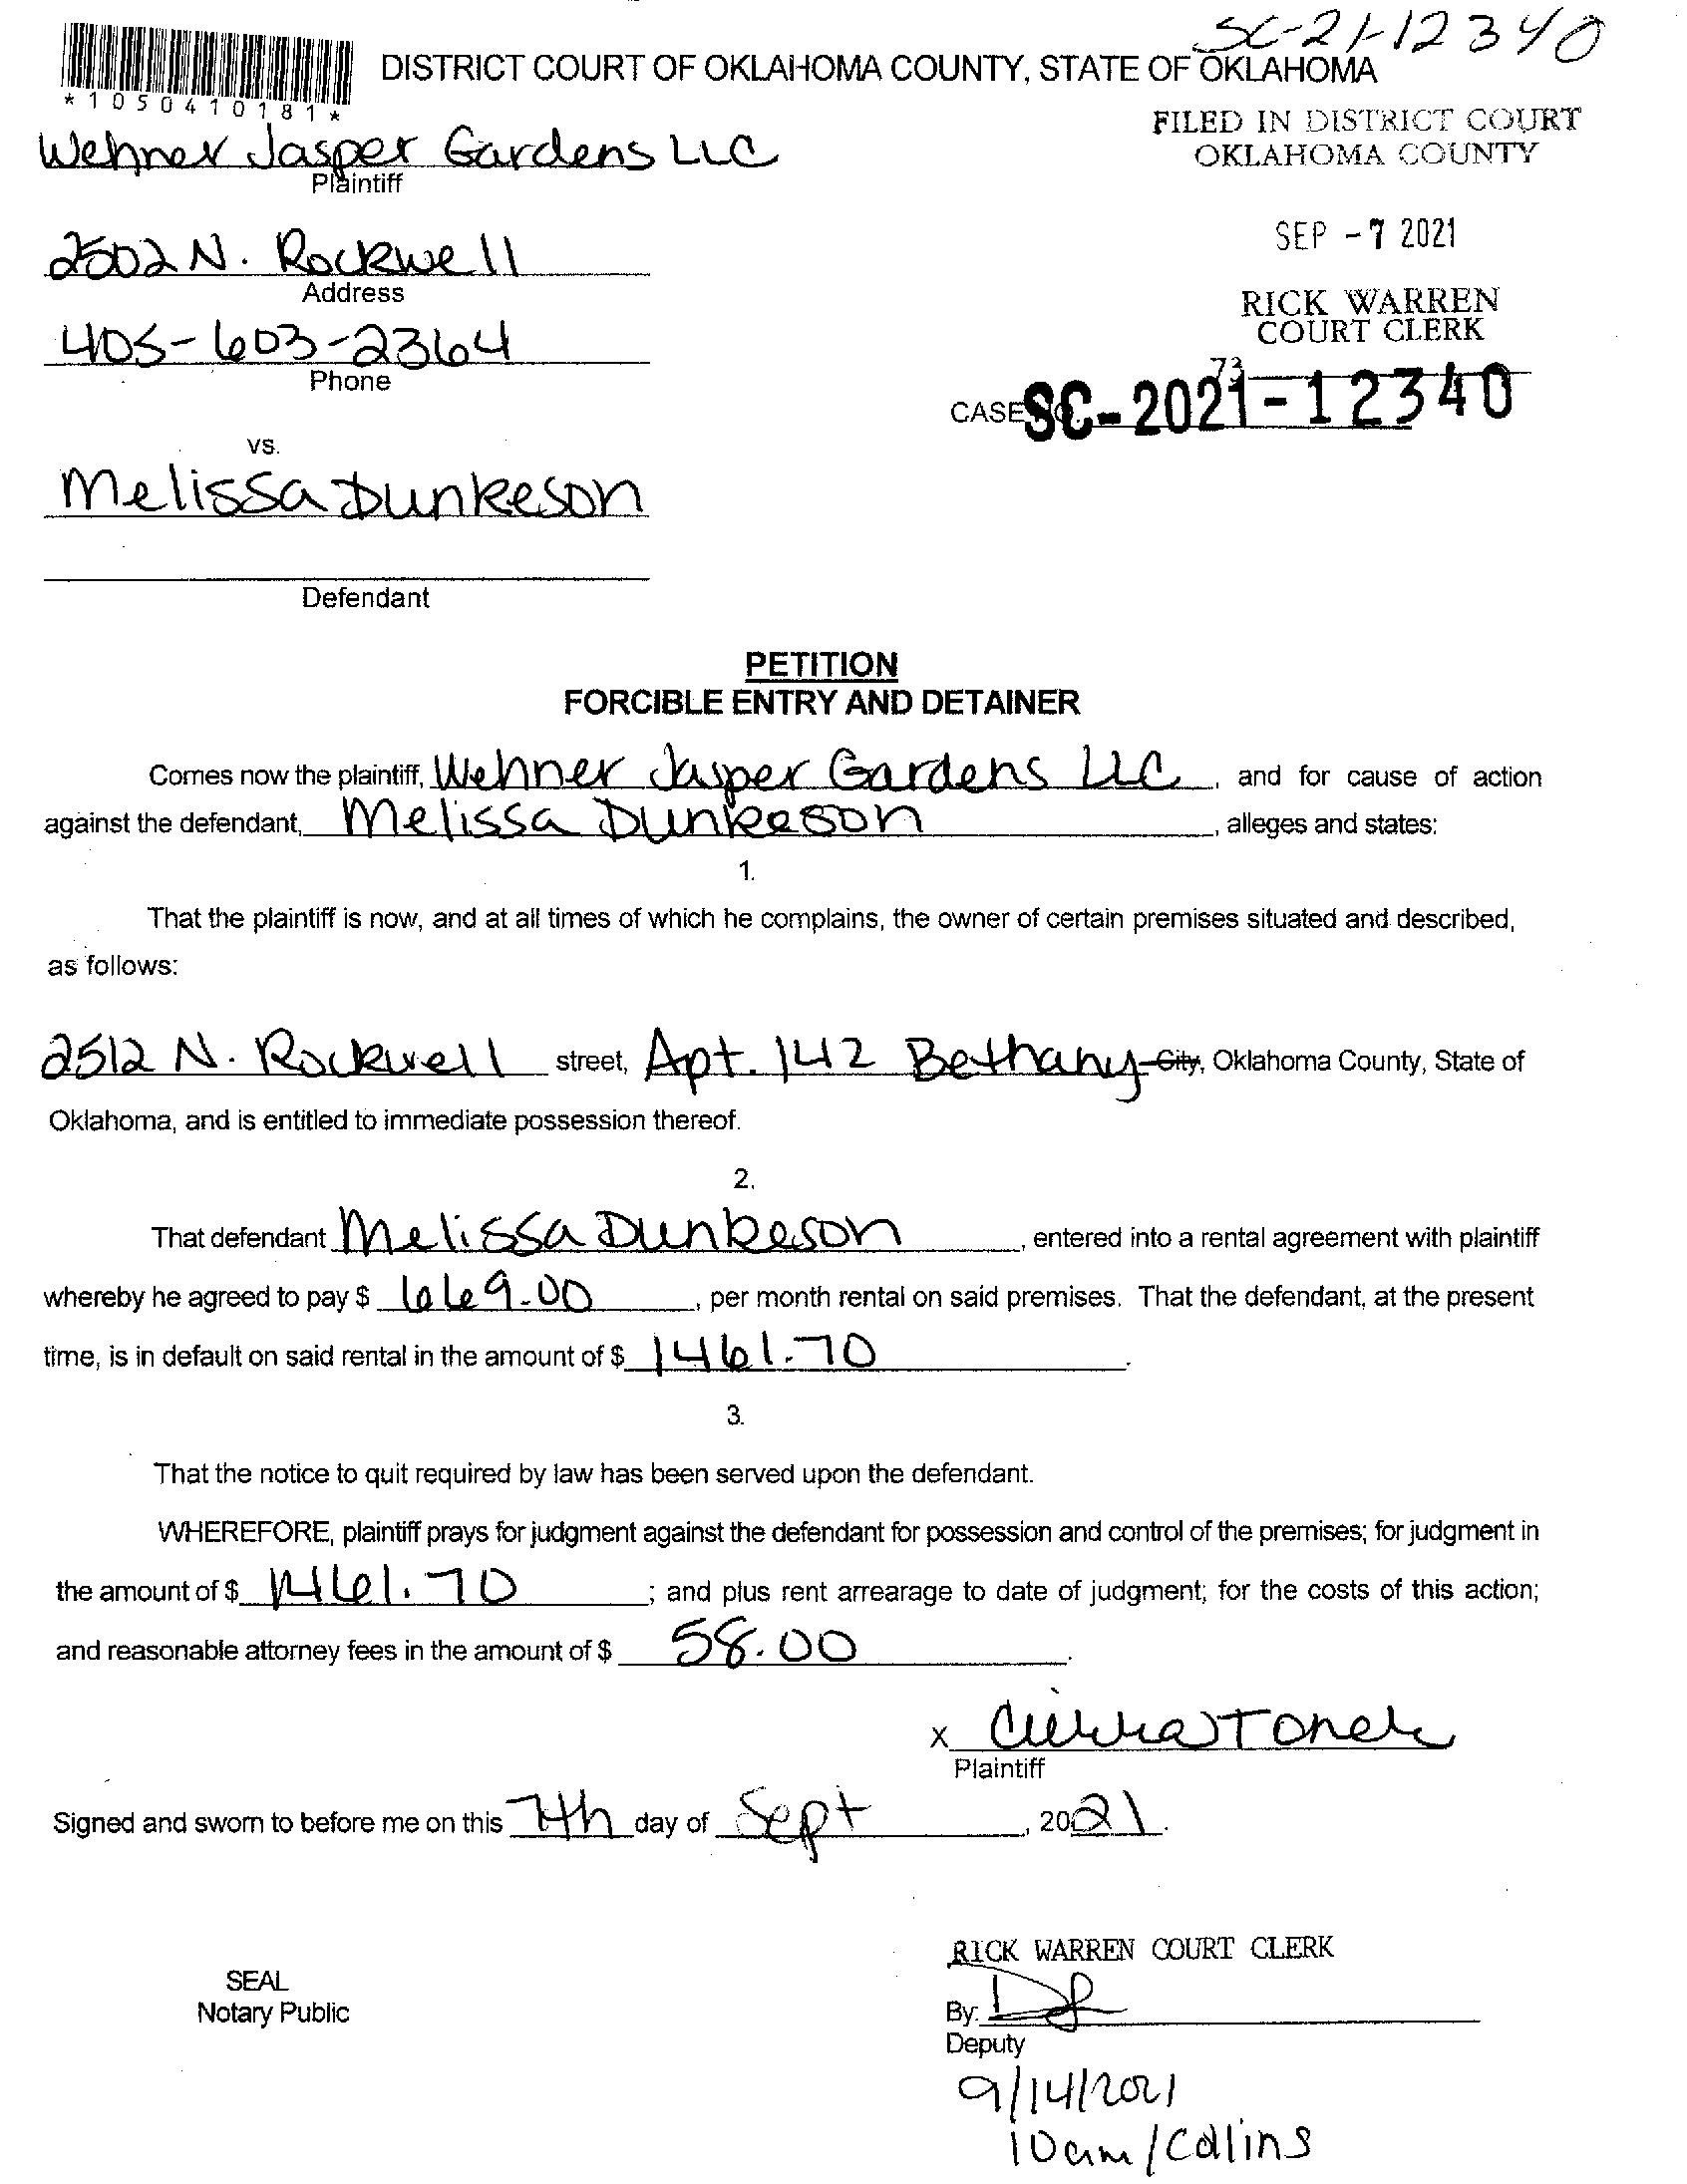 SC-21-12340
DISTRICT COURT OF OKLAHOMA COUNTY, STATE OF OKLAHOMA
*1050410181*
FILED IN DISTRICT COURT
OKLAHOMA COUNTY
Wehner Jasper Gardens LLC
Plaintiff
SEP -7 2021
2502 N. Rockwell
Address
RICK WARREN
COURT CLERK
405-603-2364
Phone
73
CASE SC-2021-12340
vs.
Melissa Dunkeson
Defendant
PETITION
FORCIBLE ENTRY AND DETAINER
Comes now the plaintiff, Wehner Jasper Gardens LLC, and for cause of action
against the defendant, Melissa Dunkeson, alleges and states:
1.
That the plaintiff is now, and at all times of which he complains, the owner of certain premises situated and described,
as follows:
2512 N. Rockwell street, Apt. 142 Bethany City, Oklahoma County, State of
Oklahoma, and is entitled to immediate possession thereof.
2.
That defendant Melissa Dunkeson, entered into a rental agreement with plaintiff
whereby he agreed to pay $ 669.00, per month rental on said premises. That the defendant, at the present
time, is in default on said rental in the amount of $ 1461.70.
3.
That the notice to quit required by law has been served upon the defendant.
WHEREFORE, plaintiff prays for judgment against the defendant for possession and control of the premises; for judgment in
the amount of $ 1461.70; and plus rent arrearage to date of judgment; for the costs of this action;
and reasonable attorney fees in the amount of $ 58.00.
X Cierra Toner
Plaintiff
Signed and sworn to before me on this 7th day of Sept, 2021.
RICK WARREN COURT CLERK
SEAL
Notary Public
By:
Deputy
9/14/2021
10am/Collins